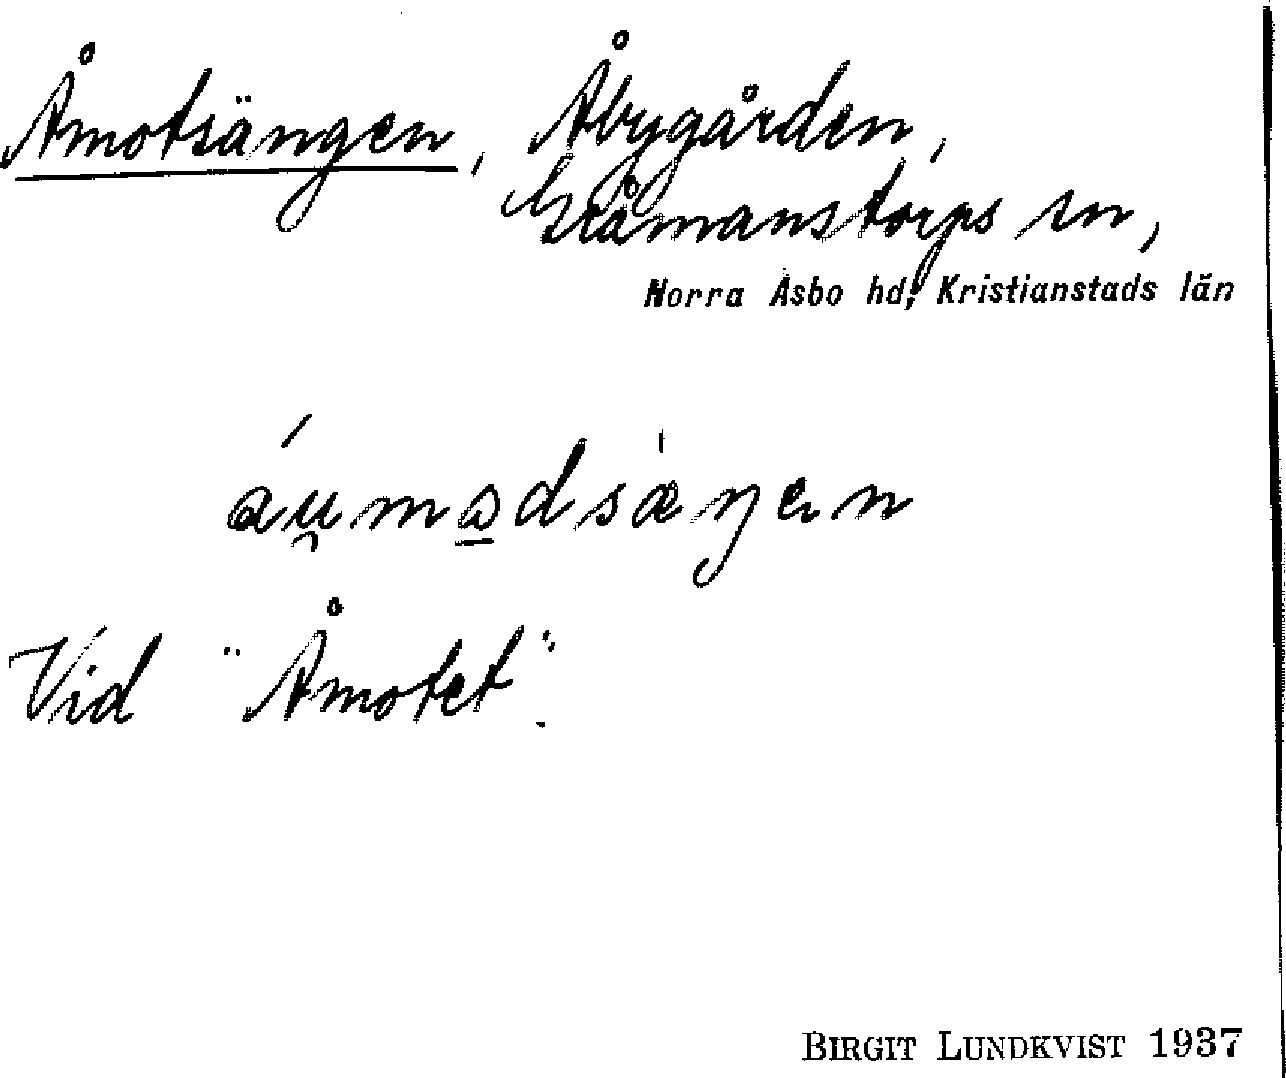 Åmotsängen, Åbygården,
Gråmanstorps sn,
Norra Åsbo hd, Kristianstads län
áu̯mωdsæ̀ŋen
Vid "Åmotet".
BIRGIT LUNDKVIST 1937